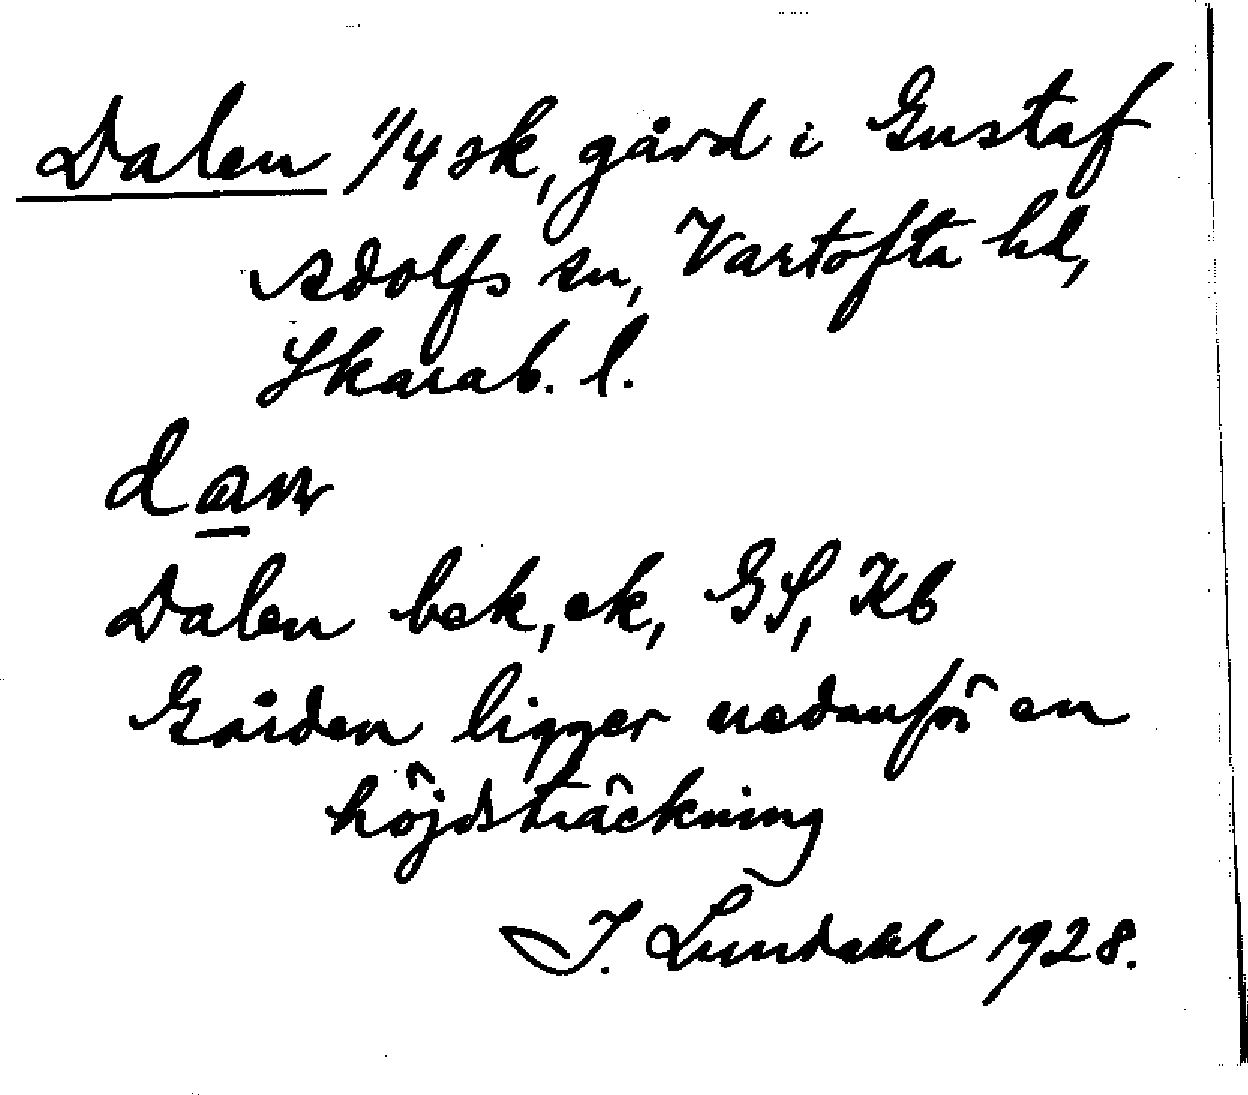 Dalen 1/4 sk, gård i Gustaf
Adolfs sn, Vartofta hd,
Skarab. l.
Dalen bek, ek, GS, Kb
Gården ligger nedanför en
höjdsträckning
I. Lundahl 1928.